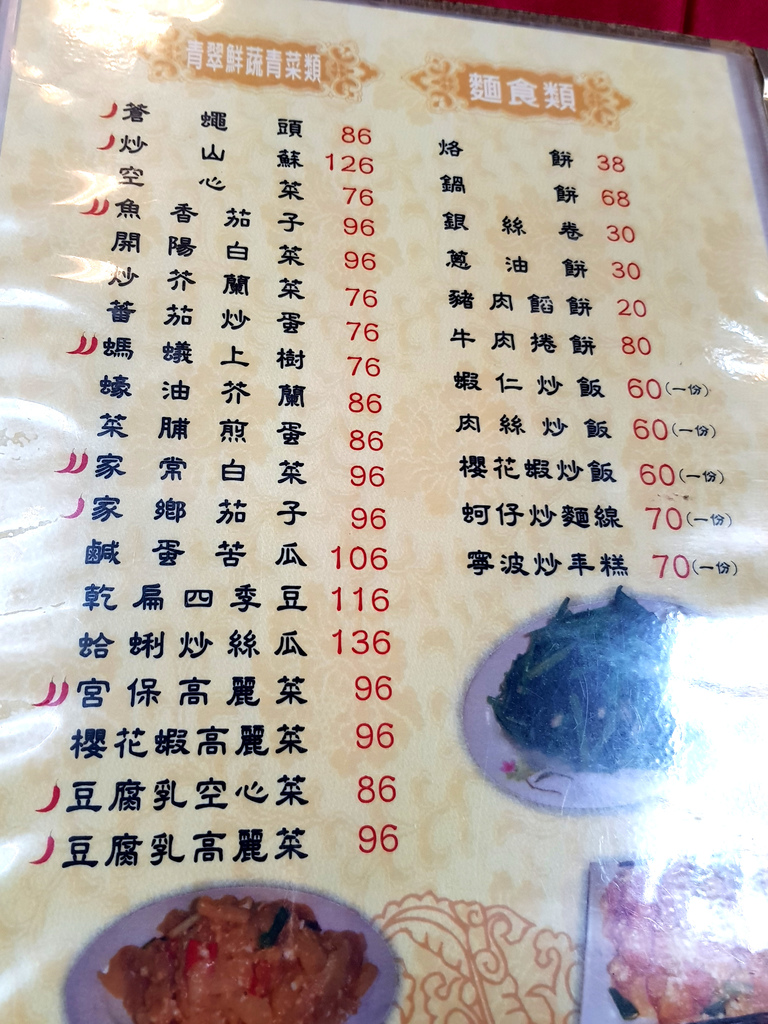 青翠鮮蔬青菜類
蒼蠅頭 86
炒山蘇 126
空心菜 76
魚香茄子 96
開陽白菜 96
炒芥蘭菜 76
蕃茄炒蛋 76
螞蟻上樹 76
蠔油芥蘭 86
菜脯煎蛋 86
家常白菜 96
家鄉茄子 96
鹹蛋苦瓜 106
乾扁四季豆 116
蛤蜊炒絲瓜 136
宮保高麗菜 96
櫻花蝦高麗菜 96
豆腐乳空心菜 86
豆腐乳高麗菜 96
麵食類
烙餅 38
鍋餅 68
銀絲卷 30
蔥油餅 30
豬肉餡餅 20
牛肉捲餅 80
蝦仁炒飯 60(一份)
肉絲炒飯 60(一份)
櫻花蝦炒飯 60(一份)
蚵仔炒麵線 70(一份)
寧波炒年糕 70(一份)